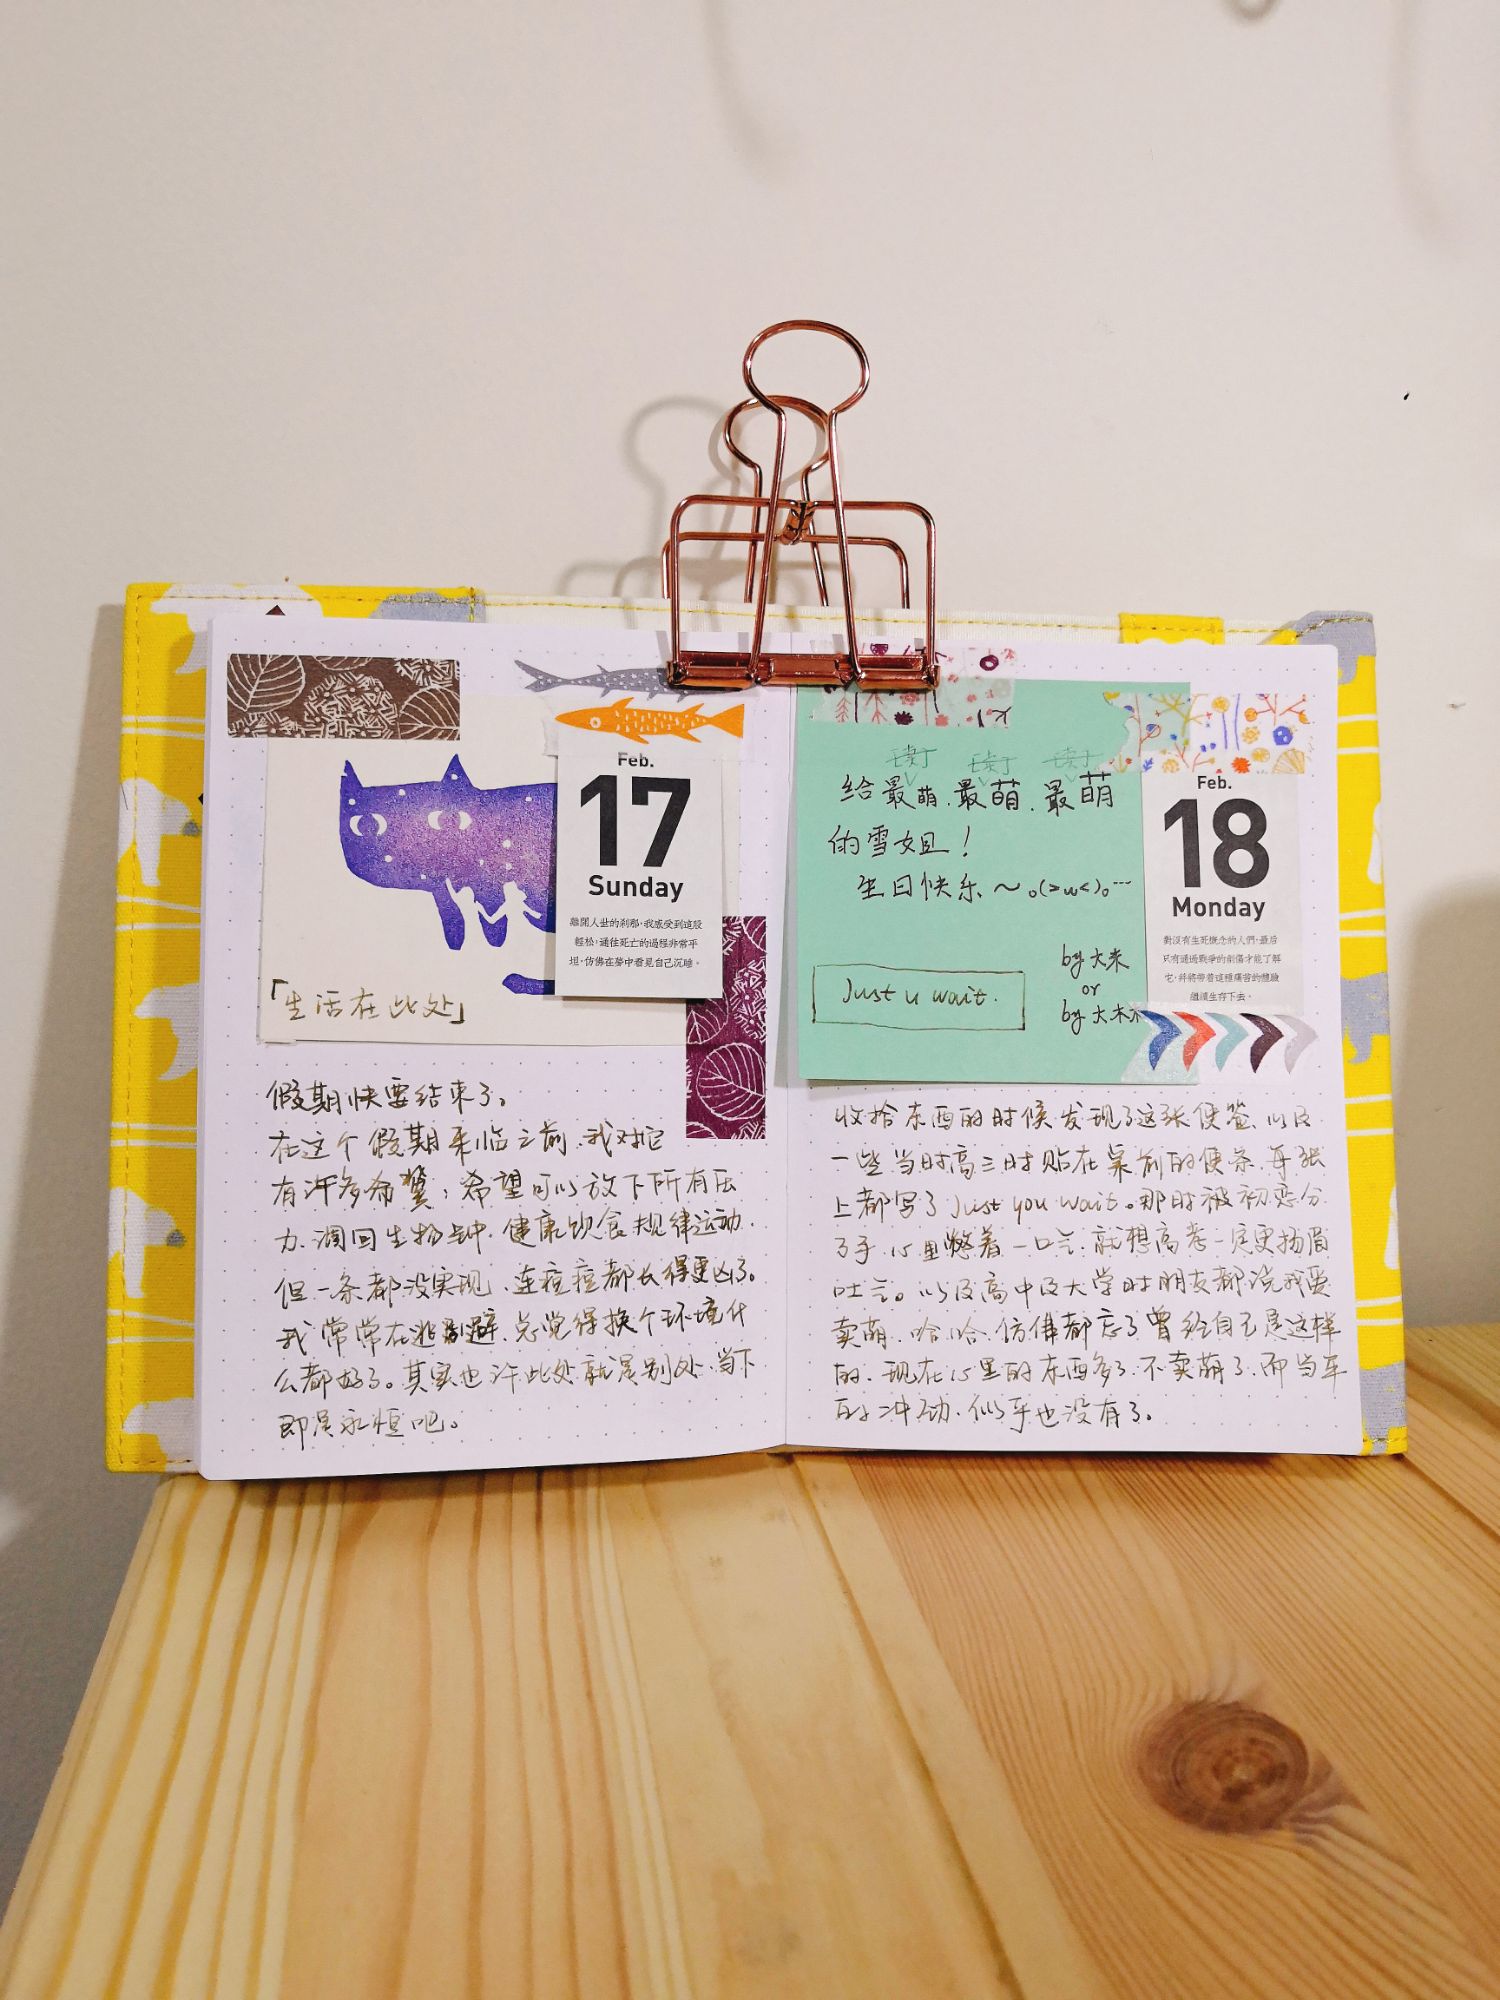 Feb.
17
Sunday
離開人世的刹那,我感受到這股
輕松,通往死亡的過程非常平
坦,仿佛在夢中看見自己沉睡。
「生活在此处」
假期快要结束了。
在这个假期来临之前,我对它
有许多希冀:希望可以放下所有压
力、调回生物钟、健康饮食规律运动、
但一条都没实现、连痘痘都长得更凶了。
我常常在逃避、总觉得换个环境什
么都好了。其实也许此处就是别处、当下
即是永恒吧。
给最萌、最萌、最萌
的雪姐!
生日快乐~。(>w<)。…
by 大米
or
by 大米米
Just u wait.
Feb.
18
Monday
對沒有生死概念的人們,最后
只有通過戰爭的創傷才能了解
它,并將帶着這種痛苦的體驗
繼續生存下去。
收拾东西的时候发现了这张便签、以及
一些当时高三时贴在桌前的便条、每张
上都写了 Just you wait。那时被初恋分
了手、心里憋着一口气、就想高考一定要扬眉
吐气。以及高中及大学时朋友都说我爱
卖萌、哈哈、仿佛都忘了曾经自己是这样
的、现在心里的东西多了、不卖萌了、而当年
的冲动、似乎也没有了。